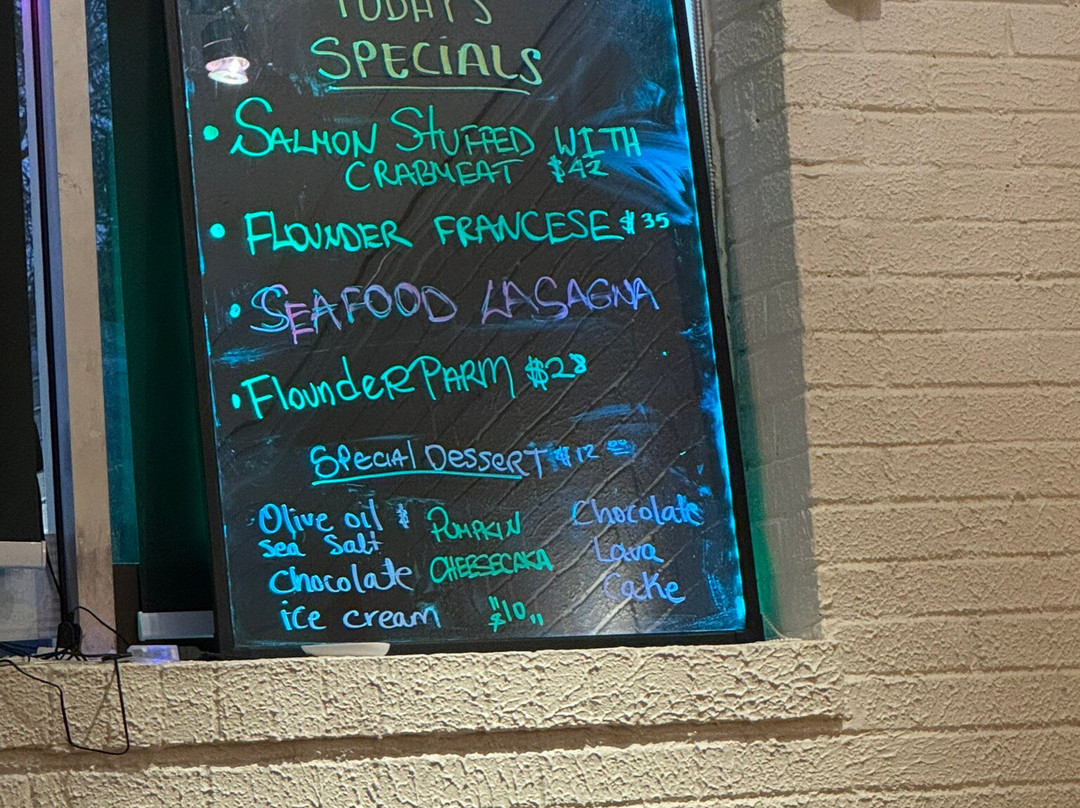 TODAY'S
SPECIALS
• SALMON STUFFED WITH
CRABMEAT $42
• FLOUNDER FRANCESE $35
• SEAFOOD LASAGNA
• FlounDeR PARM $28
SPECIAl DesserT $12 00
Olive oil &
Sea Salt
Chocolate
ice cream
PUMPKIN
CHEESECAKA
"$10"
Chocolate
Lava
Cake